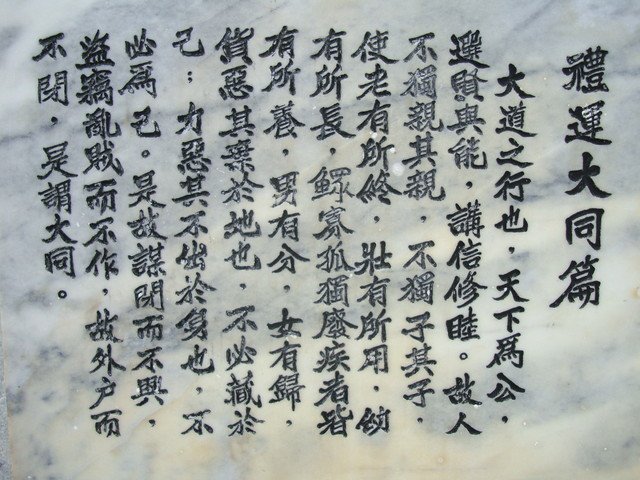 禮運大同篇
大道之行也，天下爲公，
選賢與能，講信修睦。故人
不獨親其親，不獨子其子，
使老有所終，壯有所用，幼
有所長，鰥寡孤獨廢疾者皆
有所養，男有分，女有歸，
貨惡其棄於地也，不必藏於
己；力惡其不出於身也，不
必爲己。是故謀閉而不興，
盜竊亂賊而不作，故外戶而
不閉，是謂大同。